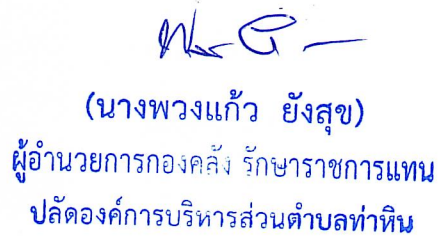 (นางพวงแก้ว ยังสุข)
ผู้อำนวยการกองคลัง รักษาราชการแทน
ปลัดองค์การบริหารส่วนตำบลท่าหิน